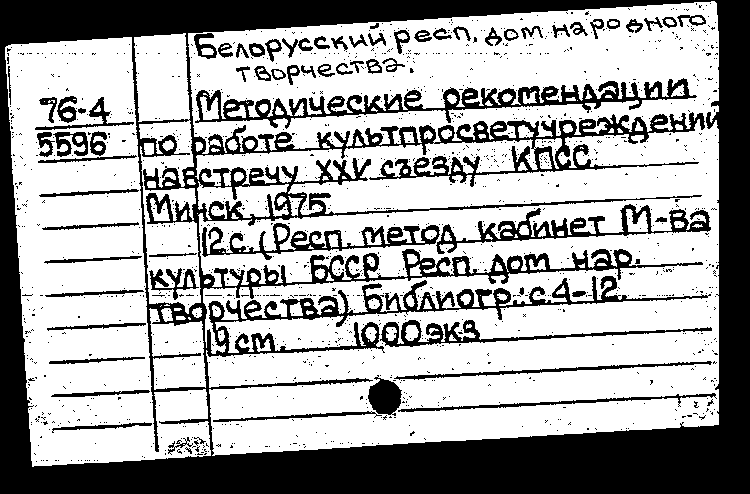 Белорусский респ. дом народного
творчества.
76-4
5596
Методические рекомендации
по работе культпросветучреждений
навстречу XXV съезду КПСС.
Минск, 1975.
12 с. (Респ. метод. кабинет М-ва
культуры БССР Респ. дом нар.
творчества). Библиогр.: с. 4-12.
19 cm. 1000 экз